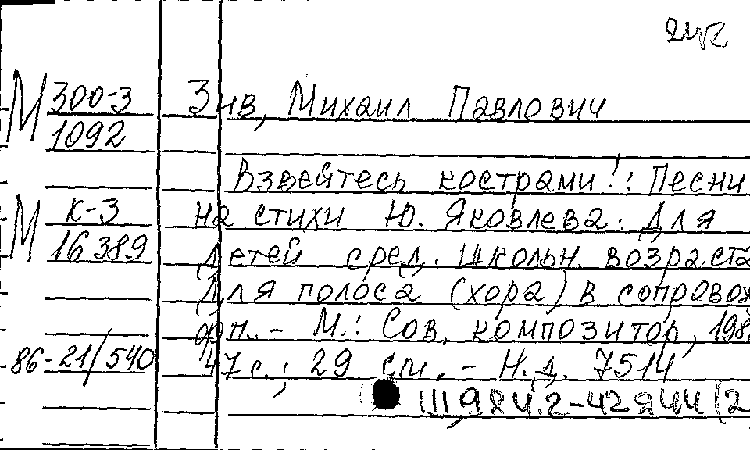 М 300-3 Зив, Михаил Павлович
1092
Взвейтесь кострами!: Песни
М К-3 на стихи Ю. Яковлева. Для
16389 детей сред. школьн. возраста
Для голоса (хора) в сопровож
фп. - М.: Сов. композитор, 198
86-21/540 47 с.; 29 см. - Н.д. 7514
Щ984.2-42Я44 (2